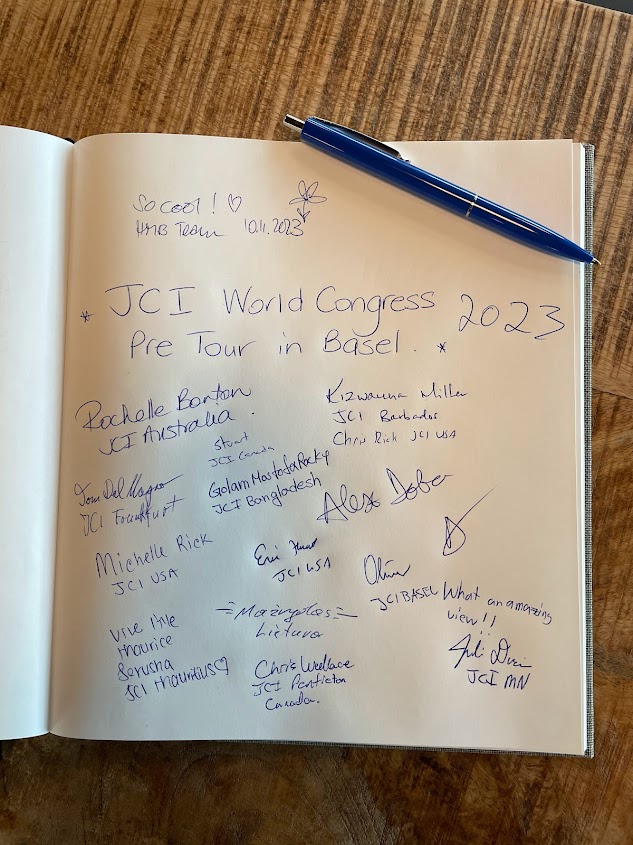 So cool! ♡
HMB Team 10.11.2023
* JCI World Congress 2023
Pre Tour in Basel. *
Rochelle Bonton
JCI Australia.
Kizwanna Miller
JCI Barbados
Chris Rick JCI USA
Stuart
JCI Canada
Golam Mostofa Rocky
JCI Bangladesh
Tom Dal Magro
JCI Frankfurt
Alex Dober
Michelle Rick
JCI USA
Eric
JCI USA
Oliver
JCI BASEL
What an amazing
view!!
JCI MN
Vive l'île
Maurice
Serusha
JCI Mauritius ♡
Lietuva
Chris Wedlace
JCI Penticton
Canada.